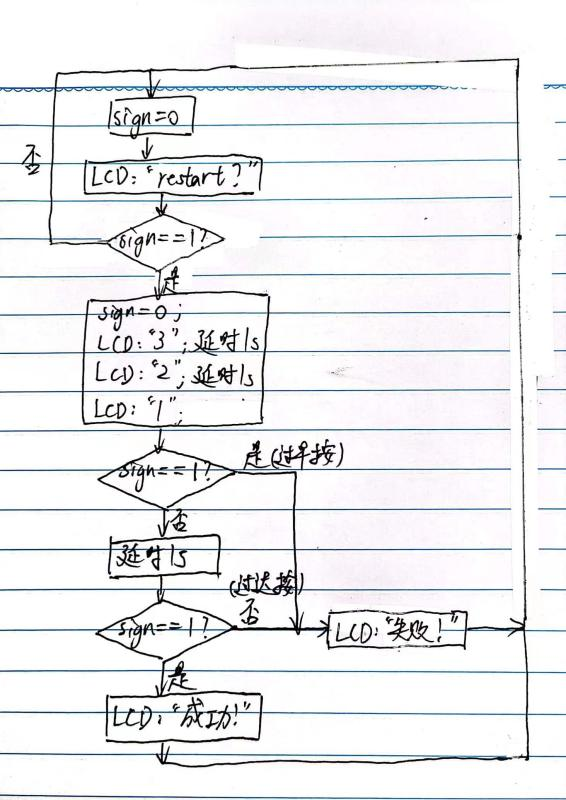 sign=0
否
LCD:"restart?"
sign==1?
是
sign=0;
LCD:"3";延时1s
LCD:"2";延时1s
LCD:"1";
sign==1?
是(过早按)
否
延时1s
(过达按)
否
sign==1?
LCD:"失败!"
是
LCD:"成功!"